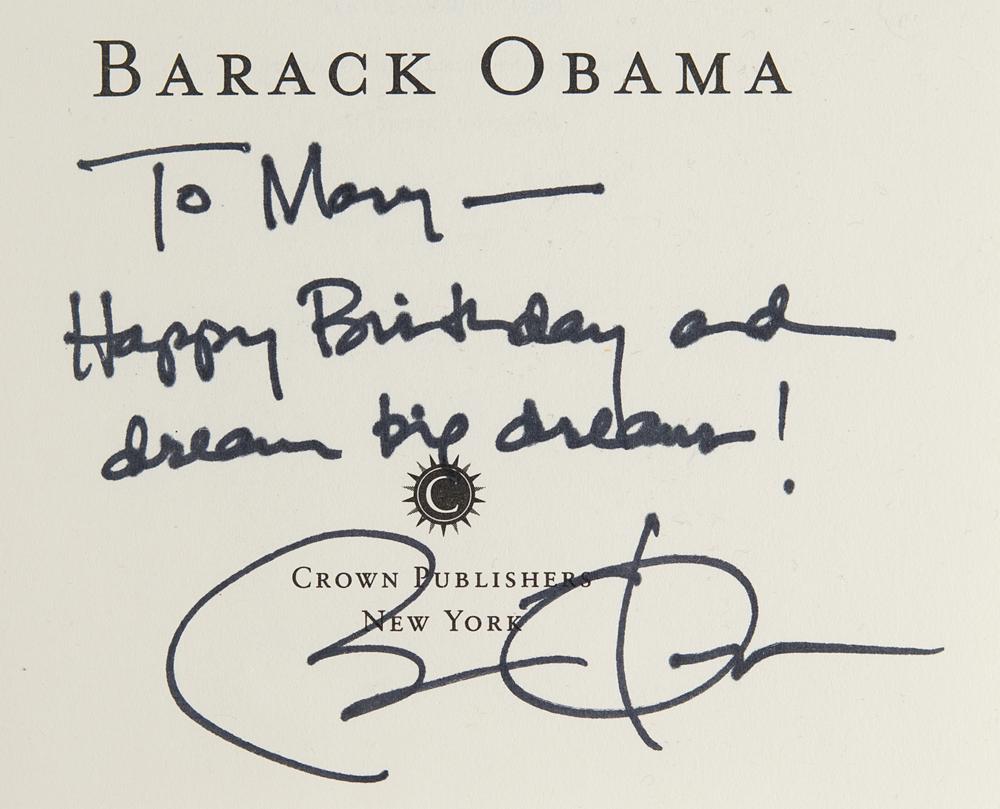 BARACK OBAMA
To Mary—
Happy Birthday and
dream big dreams!
C
CROWN PUBLISHERS
NEW YORK